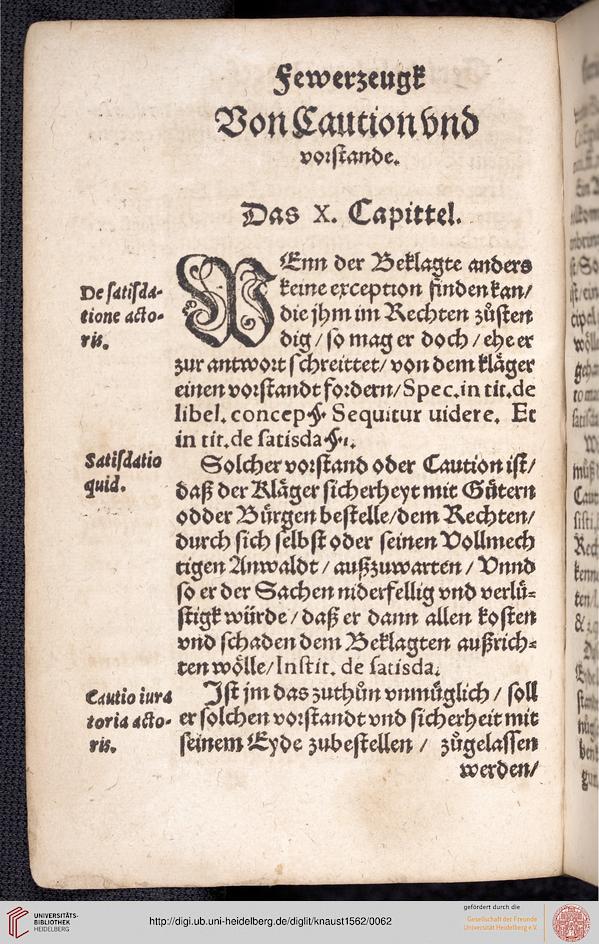 Fewerzeugk
Von Caution vnd
vorstande.
Das X. Capittel.
De satisda-
tione acto-
ris.
WEnn der Beklagte anders
keine exception finden kan/
die jhm im Rechten zůsten
dig / so mag er doch / ehe er
zur antwort schreittet/ von dem kläger
einen vorstandt fordern/ Spec. in tit. de
libel. concep Sequitur uidere. Et
in tit. de satisda
Satisdatio
quid.
Solcher vorstand oder Caution ist/
daß der Kläger sicherheyt mit Gütern
odder Bürgen bestelle/dem Rechten/
durch sich selbst oder seinen Vollmech
tigen Anwaldt / außzuwarten / Vnnd
so er der Sachen niderfellig vnd verlü=
stigk würde / daß er dann allen kosten
vnd schaden dem Beklagten außrich=
ten wölle/ Instit. de satisda.
Cautio iura
toria acto-
ris.
Jst jm das zuthůn vnmüglich / soll
er solchen vorstandt vnd sicherheit mit
seinem Eyde zubestellen / zůgelassen
werden/
UNIVERSITÄTS-
BIBLIOTHEK
HEIDELBERG
http://digi.ub.uni-heidelberg.de/diglit/knaust1562/0062
gefördert durch die
Gesellschaft der Freunde
Universität Heidelberg e.V.